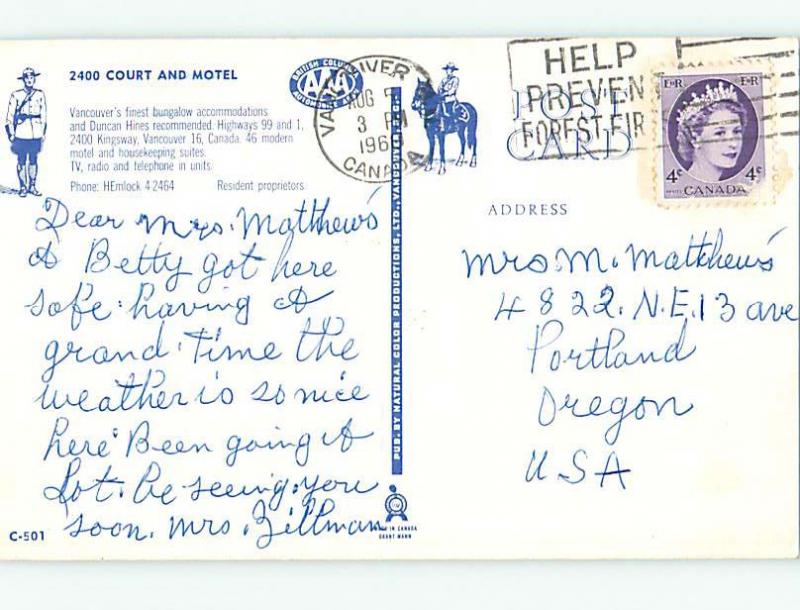 2400 COURT AND MOTEL
Vancouver's finest bungalow accommodations
and Duncan Hines recommended. Highways 99 and 1,
2400 Kingsway, Vancouver 16, Canada. 46 modern
motel and housekeeping suites.
TV, radio and telephone in units.
Phone: HEmlock 4-2464 Resident proprietors
BRITISH COLUMBIA
AAA
AUTOMOBILE ASSN
VANCOUVER
AUG
3 PM
196
CANADA
HELP
PREVENT
FOREST FIR
POST
CARD
E II R E II R
4c 4c
CANADA
Dear Mrs. Matthew's
& Betty got here
safe. having A
grand. Time the
weather is so nice
here Been going A
Lot. be seeing. you
soon. Mrs. Zillman
ADDRESS
Mrs. M. Matthew's
4822. N.E. 13 ave
Portland
Oregon
USA
PUB. BY NATURAL COLOR PRODUCTIONS, LTD., VANCOUVER
C-501
IN CANADA
GRANT MANN